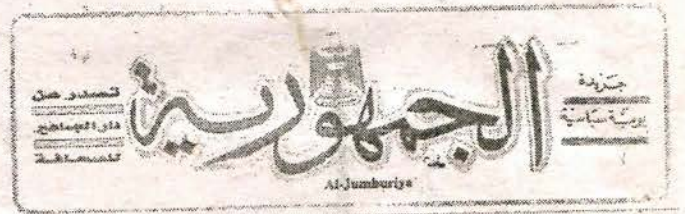 جريدة
يومية سياسية
الجمهورية
Al-Jumburiya
تصدر عن
دار الجماهير
للصحافة